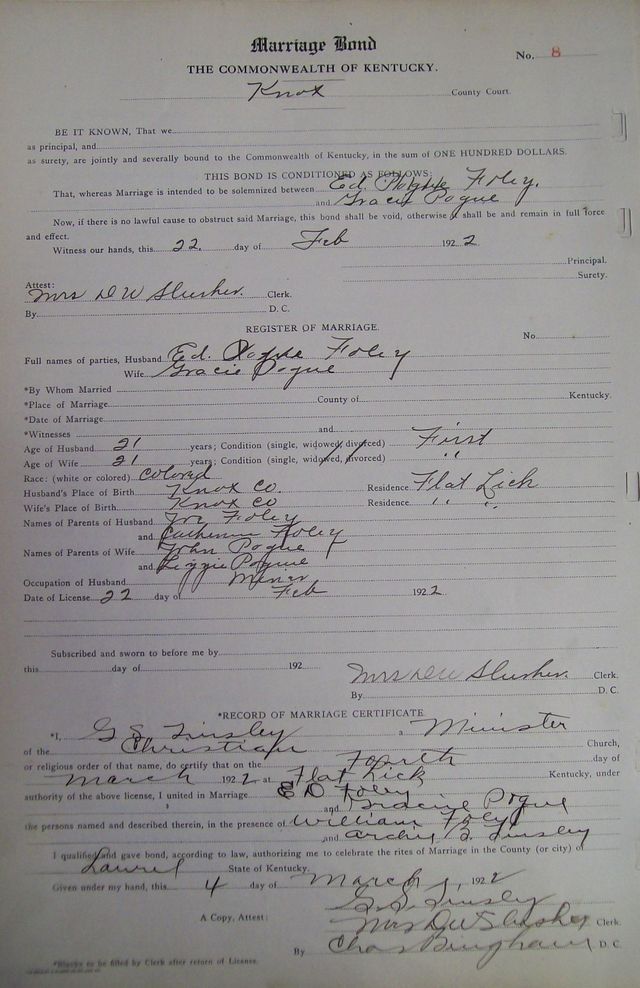 Marriage Bond
No. 8
THE COMMONWEALTH OF KENTUCKY.
Knox County Court.
BE IT KNOWN, That we
as principal, and
as surety, are jointly and severally bound to the Commonwealth of Kentucky, in the sum of ONE HUNDRED DOLLARS.
THIS BOND IS CONDITIONED AS FOLLOWS:
That, whereas Marriage is intended to be solemnized between Ed. Foley.
and Gracie Pogue
Now, if there is no lawful cause to obstruct said Marriage, this bond shall be void, otherwise it shall be and remain in full force
and effect.
Witness our hands, this 22. day of Feb 1922
Principal.
Surety.
Attest:
Mrs D W Slusher. Clerk.
By D. C.
REGISTER OF MARRIAGE.
No.
Full names of parties, Husband Ed. Foley
Wife Gracie Pogue
*By Whom Married
*Place of Marriage County of Kentucky.
*Date of Marriage
*Witnesses and
Age of Husband 21 years; Condition (single, widowed, divorced) First
Age of Wife 21 years; Condition (single, widowed, divorced) " "
Race: (white or colored) Colored
Husband's Place of Birth Knox Co. Residence Flat Lick
Wife's Place of Birth Knox Co Residence " "
Names of Parents of Husband Foley
and Catherine Foley
Names of Parents of Wife John Pogue
and Lizzie Pogue
Occupation of Husband Miner
Date of License 22 day of Feb 1922
Subscribed and sworn to before me by
this day of 192
Mrs D W Slusher. Clerk.
By D. C.
*RECORD OF MARRIAGE CERTIFICATE.
*I, G S Tinsley a Minister
of the Christian Church,
or religious order of that name, do certify that on the Fourth day of
March 1922 at Flat Lick Kentucky, under
authority of the above license, I united in Marriage E D Foley
and Pogue
the persons named and described therein, in the presence of William Foley
and Tinsley
I qualified and gave bond, according to law, authorizing me to celebrate the rites of Marriage in the County (or city) of
Laurel State of Kentucky.
Given under my hand, this 4 day of March 1922
G. S. Tinsley
A Copy, Attest: Mrs D W Slusher Clerk.
By Chas Bingham D. C.
*Blanks to be filled by Clerk after return of License.